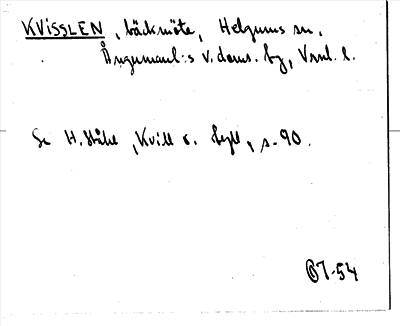 KVISSLEN, bäckmöte, Helgums sn,
Ångermanl:s v. doms. fg, Vnl. l.
Se H. Ståhl, Kvill o. tyll, s. 90.
-54